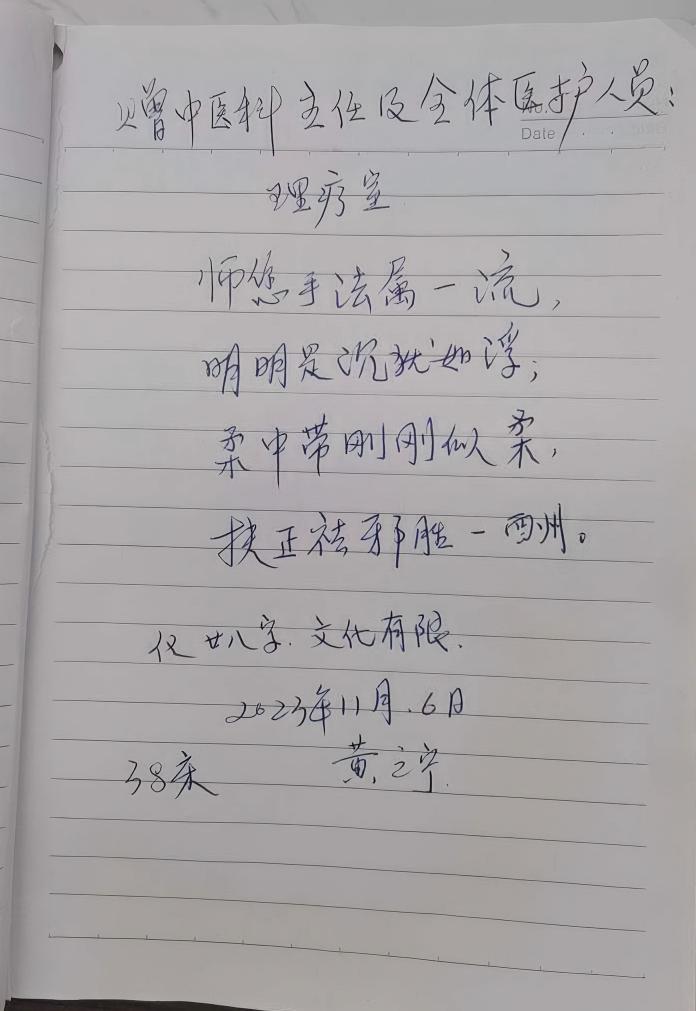 赠中医科主任及全体医护人员:
No.
Date
理疗室
师您手法属一流,
明明是沉犹如浮;
柔中带刚刚似柔,
扶正祛邪胜一西州。
仅廿八字.文化有限.
2023年11月.6日
38床 黄之宁.